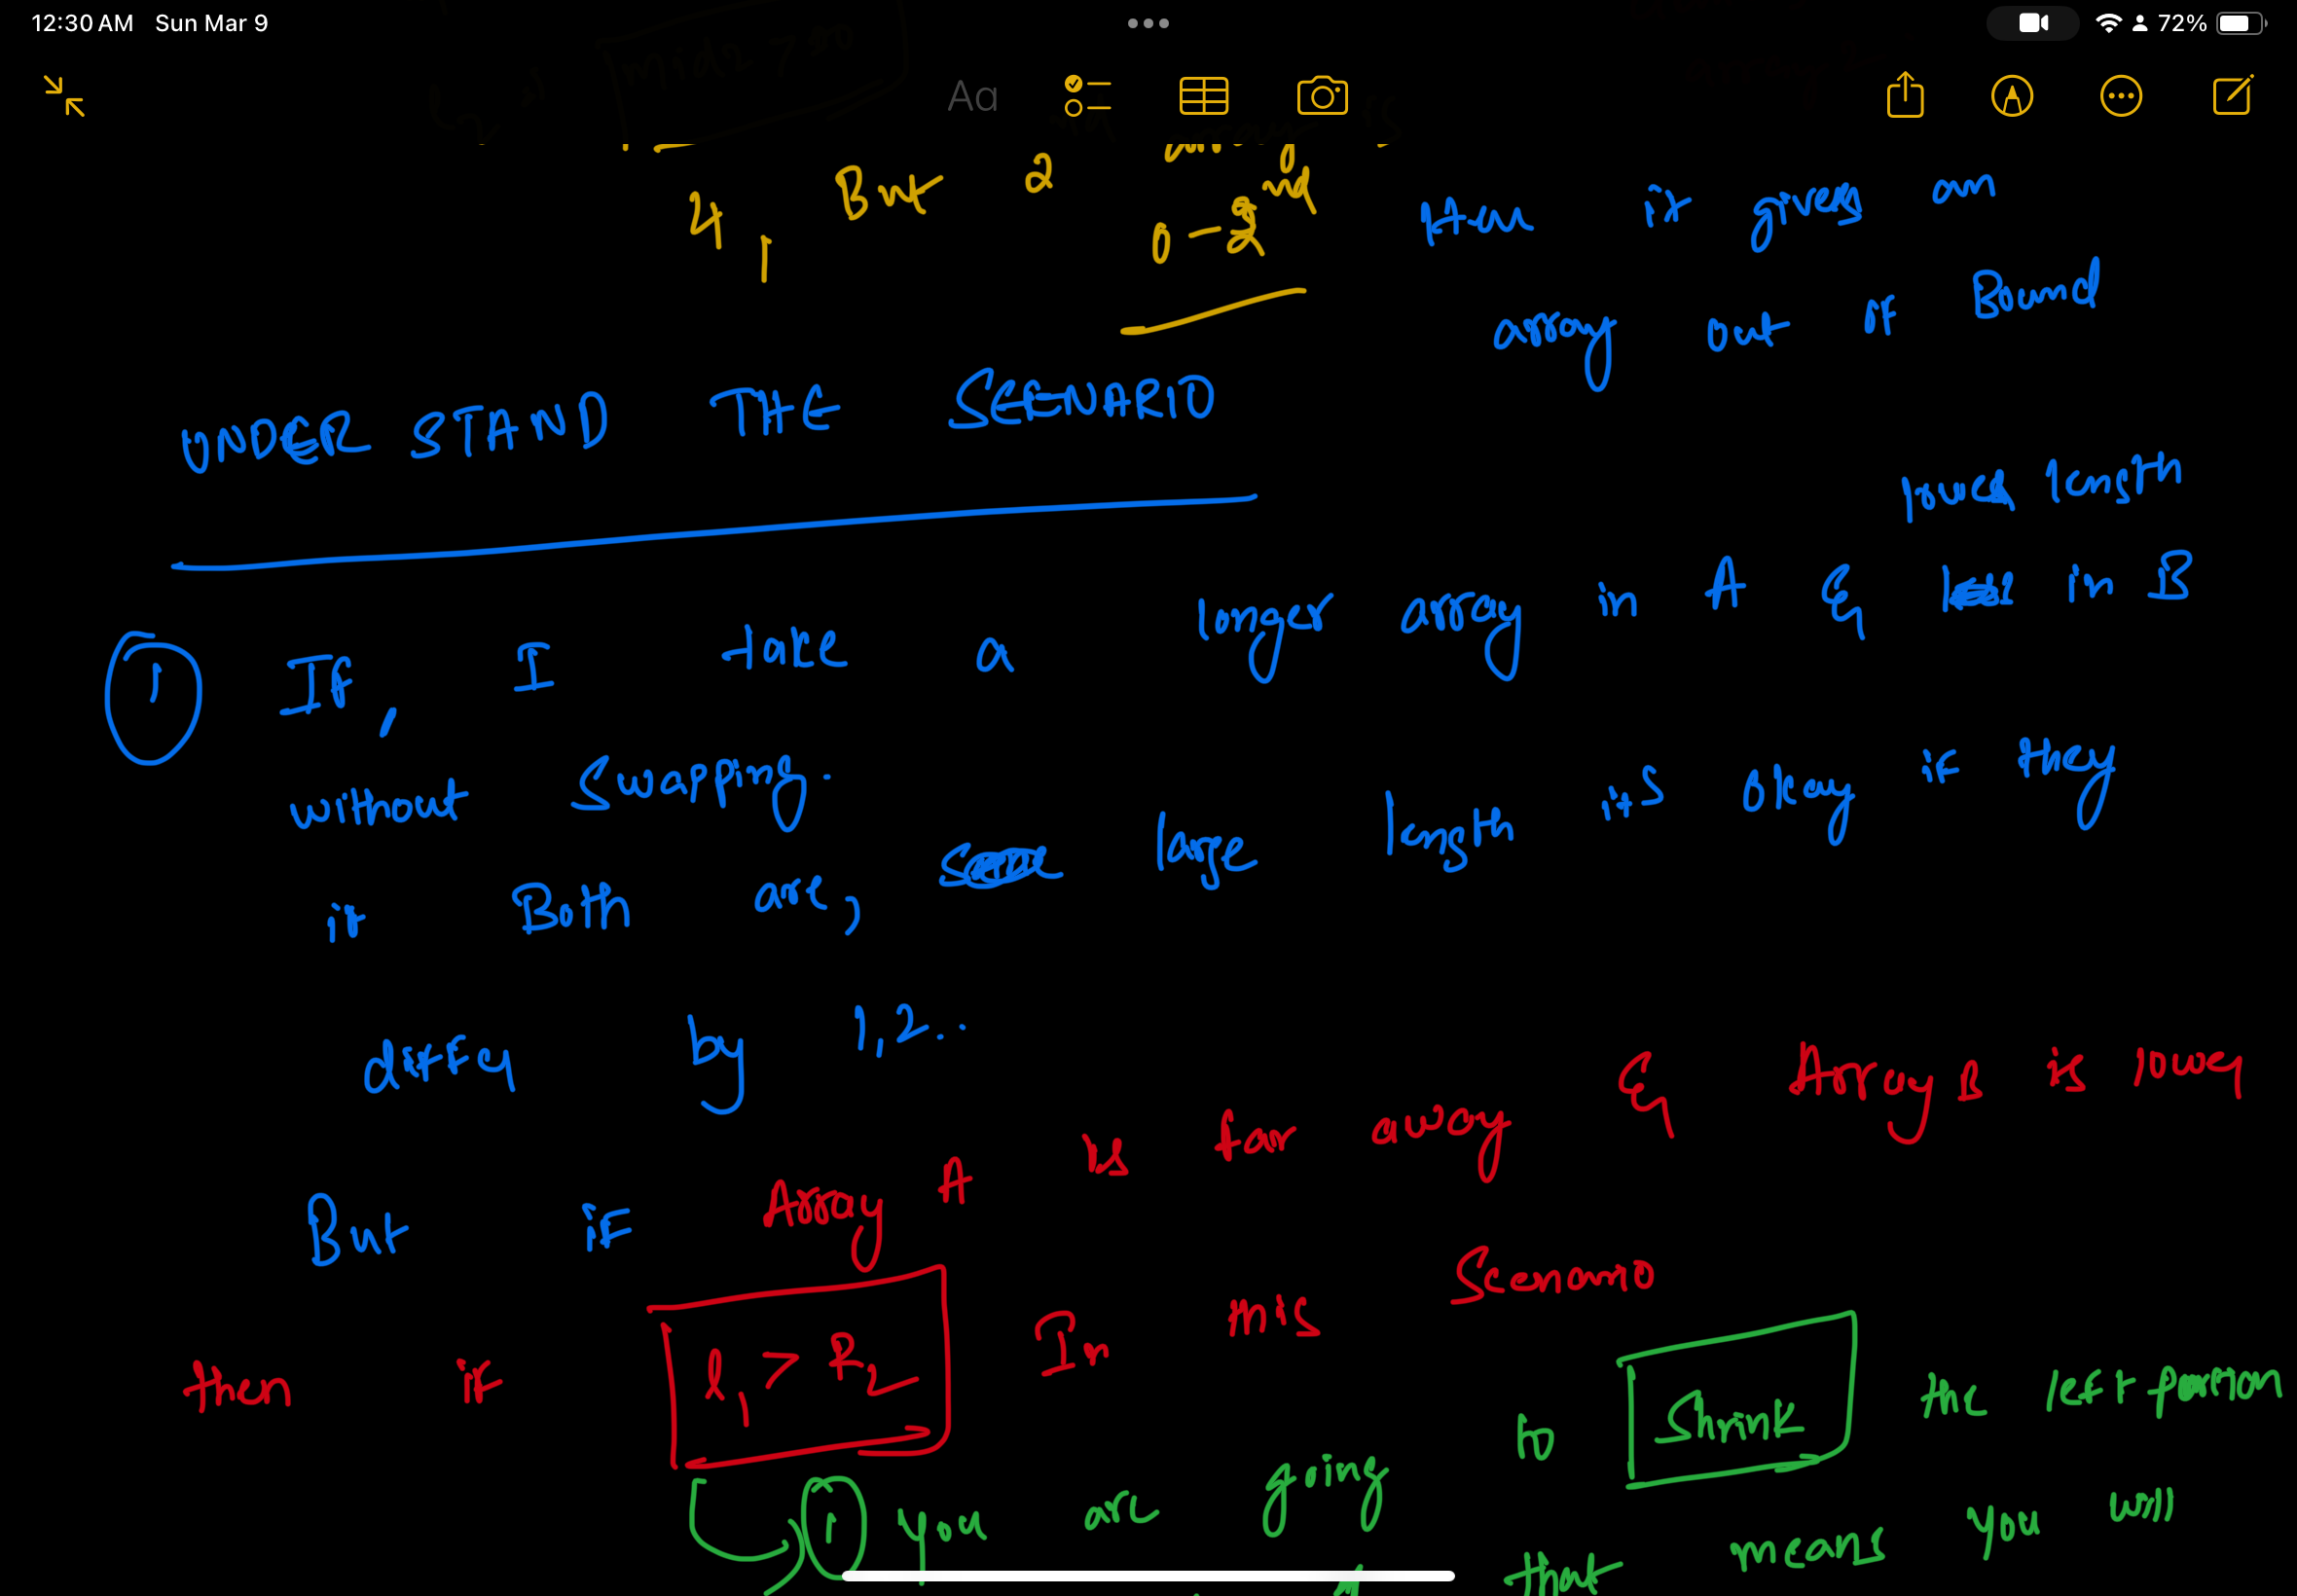 12:30 AM Sun Mar 9
72%
Aa
4, But 2 array is
0-2nd
it gives an
array out of Bound
UNDER STAND THE SCENARIO
lower length
① If, I take a longer array in A & in B
without Swapping.
if Both are, large length its Okay if they
differ by 1,2..
But if Array A is far away & Array B is lower
then if l1 > R2 In this Scenario
① you are going to Shrink the left portion
that means you will